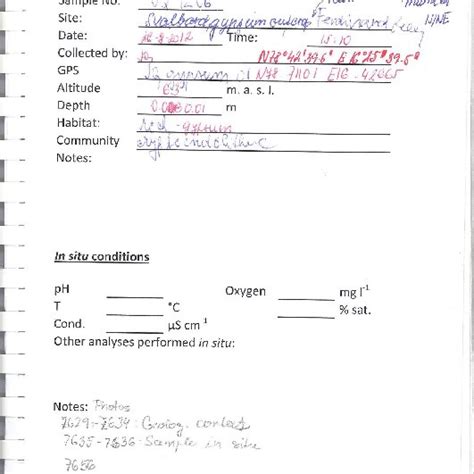 Sample No.
Site: Svalbard gypsum
Date: 2012 Time: 15-10
Collected by: N78°42'39.6" E16°25'39.5"
GPS gypsum 01 N78 71101 E16
Altitude m. a. s. l.
Depth 0.01 m
Habitat: rock - gypsum
Community cryptoendolithic
Notes:
In situ conditions
pH Oxygen mg l-1
T °C % sat.
Cond. µS cm-1
Other analyses performed in situ:
Notes: Photos
7629-7634: Geolog. context
7635-7636- Sample in situ
7656